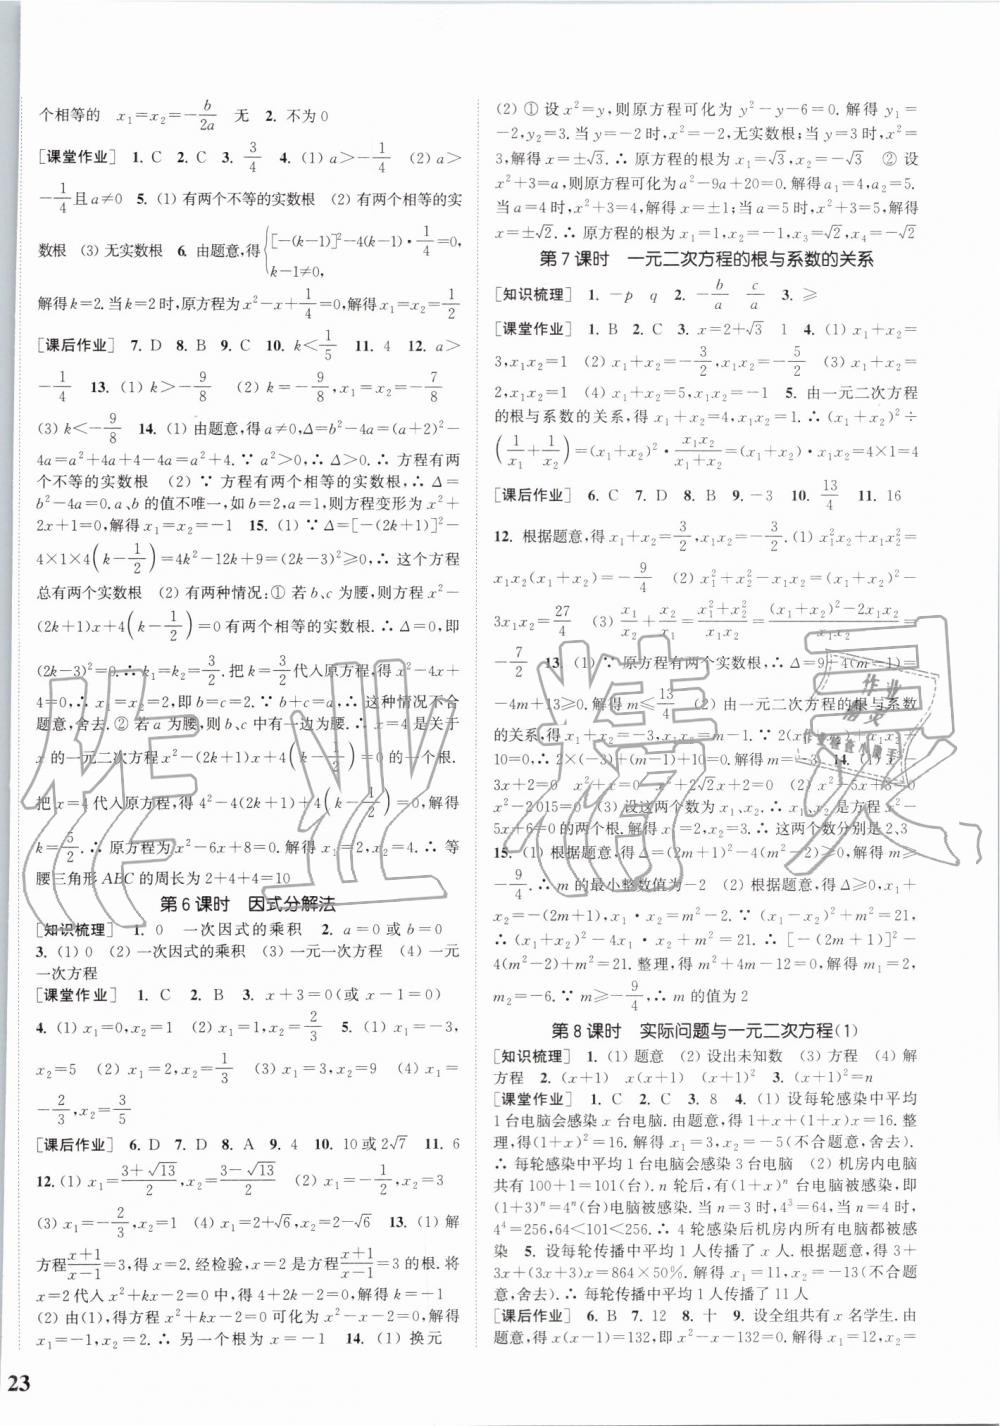 个相等的 x₁=x₂=-b/2a 无 2. 不为0
[课堂作业] 1. C 2. C 3. 3/4 4. (1) a>-1/4 (2) a>
-1/4且a≠0 5. (1) 有两个不等的实数根 (2) 有两个相等的实
数根 (3) 无实数根 6. 由题意,得{[-(k-1)]²-4(k-1)·1/4=0, k-1≠0,
解得k=2.当k=2时,原方程为x²-x+1/4=0,解得x₁=x₂=1/2
[课后作业] 7. D 8. B 9. C 10. k<1/5 11. 4 12. a>
-1/4 13. (1) k>-9/8 (2) k=-9/8,x₁=x₂=-7/8
(3) k<-9/8 14. (1) 由题意,得a≠0,Δ=b²-4a=(a+2)²-
4a=a²+4a+4-4a=a²+4.∵ a²>0,∴ Δ>0.∴ 方程有两
个不等的实数根 (2) ∵ 方程有两个相等的实数根,∴ Δ=
b²-4a=0.a、b的值不唯一,如b=2,a=1,则方程变形为x²+
2x+1=0,解得x₁=x₂=-1 15. (1) ∵ Δ=[-(2k+1)]²-
4×1×4(k-1/2)=4k²-12k+9=(2k-3)²≥0,∴ 这个方程
总有两个实数根 (2) 有两种情况:① 若b、c为腰,则方程x²-
(2k+1)x+4(k-1/2)=0有两个相等的实数根.∴ Δ=0,即
(2k-3)²=0.∴ k₁=k₂=3/2.把k=3/2代入原方程,得x²-4x+
4=0,∴ x₁=x₂=2,即b=c=2.∵ b+c=a,∴ 这种情况不合
题意,舍去.② 若a为腰,则b、c中有一边为4.∴ x=4是关于
x的一元二次方程x²-(2k+1)x+4(k-1/2)=0的一个根.
把x=4代入原方程,得4²-4(2k+1)+4(k-1/2)=0,解得
k=5/2.∴ 原方程为x²-6x+8=0.解得x₁=2,x₂=4.∴ 等
腰三角形ABC的周长为2+4+4=10
第6课时 因式分解法
[知识梳理] 1. 0 一次因式的乘积 2. a=0或b=0
3. (1) 0 (2) 一次因式的乘积 (3) 一元一次方程 (4) 一元
一次方程
[课堂作业] 1. C 2. B 3. x+3=0(或x-1=0)
4. (1) x₁=0,x₂=1 (2) x₁=x₂=2/3 5. (1) x₁=-3,
x₂=5 (2) x₁=2,x₂=1/3 (3) x₁=3,x₂=1 (4) x₁=
-2/3,x₂=3/5
[课后作业] 6. D 7. D 8. A 9. 4 10. 10或2√7 11. 6
12. (1) x₁=(3+√13)/2,x₂=(3-√13)/2 (2) x₁=2,x₂=3
(3) x₁=-2/3,x₂=2 (4) x₁=2+√6,x₂=2-√6 13. (1) 解
方程(x+1)/(x-1)=3,得x=2.经检验,x=2是方程(x+1)/(x-1)=3的解.把
x=2代入x²+kx-2=0中,得4+2k-2=0,解得k=-1
(2) 由(1),得方程x²+kx-2=0可化为x²-x-2=0,解得
x₁=-1,x₂=2.∴ 另一个根为x=-1 14. (1) 换元
(2) ① 设x²=y,则原方程可化为y²-y-6=0.解得y₁=
-2,y₂=3.当y=-2时,x²=-2,无实数根;当y=3时,x²=
3,解得x=±√3.∴ 原方程的根为x₁=√3,x₂=-√3 ② 设
x²+3=a,则原方程可化为a²-9a+20=0.解得a₁=4,a₂=5.
当a=4时,x²+3=4,解得x=±1;当a=5时,x²+3=5,解得
x=±√2.∴ 原方程的根为x₁=1,x₂=-1,x₃=√2,x₄=-√2
第7课时 一元二次方程的根与系数的关系
[知识梳理] 1. -p q 2. -b/a c/a 3. ≥
[课堂作业] 1. B 2. C 3. x=2+√3 1 4. (1) x₁+x₂=
3,x₁x₂=1 (2) x₁+x₂=-3/2,x₁x₂=-5/2 (3) x₁+x₂=
2,x₁x₂=1 (4) x₁+x₂=5,x₁x₂=-1 5. 由一元二次方程
的根与系数的关系,得x₁+x₂=4,x₁x₂=1.∴ (x₁+x₂)²÷
(1/x₁+1/x₂)=(x₁+x₂)²·x₁x₂/(x₁+x₂)=(x₁+x₂)·x₁x₂=4×1=4
[课后作业] 6. C 7. D 8. B 9. -3 10. 13/4 11. 16
12. 根据题意,得x₁+x₂=3/2,x₁x₂=-3/2.(1) x₁²x₂+x₁x₂²=
x₁x₂(x₁+x₂)=-9/4 (2) x₁²+x₂²-x₁x₂=(x₁+x₂)²-
3x₁x₂=27/4 (3) x₁/x₂+x₂/x₁=(x₁²+x₂²)/x₁x₂=((x₁+x₂)²-2x₁x₂)/x₁x₂=
-7/2 13. (1) ∵ 原方程有两个实数根,∴ Δ=9-4(m-1)=
-4m+13≥0.解得m≤13/4 (2) 由一元二次方程的根与系数
的关系,得x₁+x₂=-3,x₁x₂=m-1.∵ 2(x₁+x₂)+x₁x₂+
10=0,∴ 2×(-3)+(m-1)+10=0.解得m=-3 14. (1) x²-
3x+2=0 x²=0 x²-2√2x+2=0 (2) x²+5x+6=0
x²-2015=0 (3) 设这两个数为x₁、x₂.∴ x₁、x₂是方程x²-
5x+6=0的两个根.解得x₁=2,x₂=3.∴ 这两个数分别是2、3
15. (1) 根据题意,得Δ=(2m+1)²-4(m²-2)≥0.解得m≥
-9/4.∴ m的最小整数值为-2 (2) 根据题意,得x₁+
x₂=-(2m+1),x₁x₂=m²-2.∵ (x₁-x₂)²+m²=21,
∴ (x₁+x₂)²-4x₁x₂+m²=21.∴ [-(2m+1)]²-
4(m²-2)+m²=21.整理,得m²+4m-12=0.解得m₁=2,
m₂=-6.∵ m≥-9/4,∴ m的值为2
第8课时 实际问题与一元二次方程(1)
[知识梳理] 1. (1) 题意 (2) 设出未知数 (3) 方程 (4) 解
方程 2. (x+1) x(x+1) (x+1)² 3. (x+1)²=n
[课堂作业] 1. C 2. C 3. 8 4. (1) 设每轮感染中平均
1台电脑会感染x台电脑.由题意,得1+x+(1+x)x=16.整
理,得(1+x)²=16.解得x₁=3,x₂=-5(不合题意,舍去).
∴ 每轮感染中平均1台电脑会感染3台电脑 (2) 机房内电脑
共有100+1=101(台).n轮后,有(1+x)ⁿ台电脑被感染,即
(1+3)ⁿ=4ⁿ(台)电脑被感染.当n=3时,4³=64,当n=4时,
4⁴=256,64<101<256.∴ 4轮感染后机房内所有电脑都被感
染 5. 设每轮传播中平均1人传播了x人.根据题意,得3+
3x+(3+3x)x=864×50%.解得x₁=11,x₂=-13(不合题
意,舍去).∴ 每轮传播中平均1人传播了11人
[课后作业] 6. B 7. 12 8. 十 9. 设全组共有x名学生.由
题意,得x(x-1)=132,即x²-x-132=0.解得x₁=12,x₂=
23
作业精灵